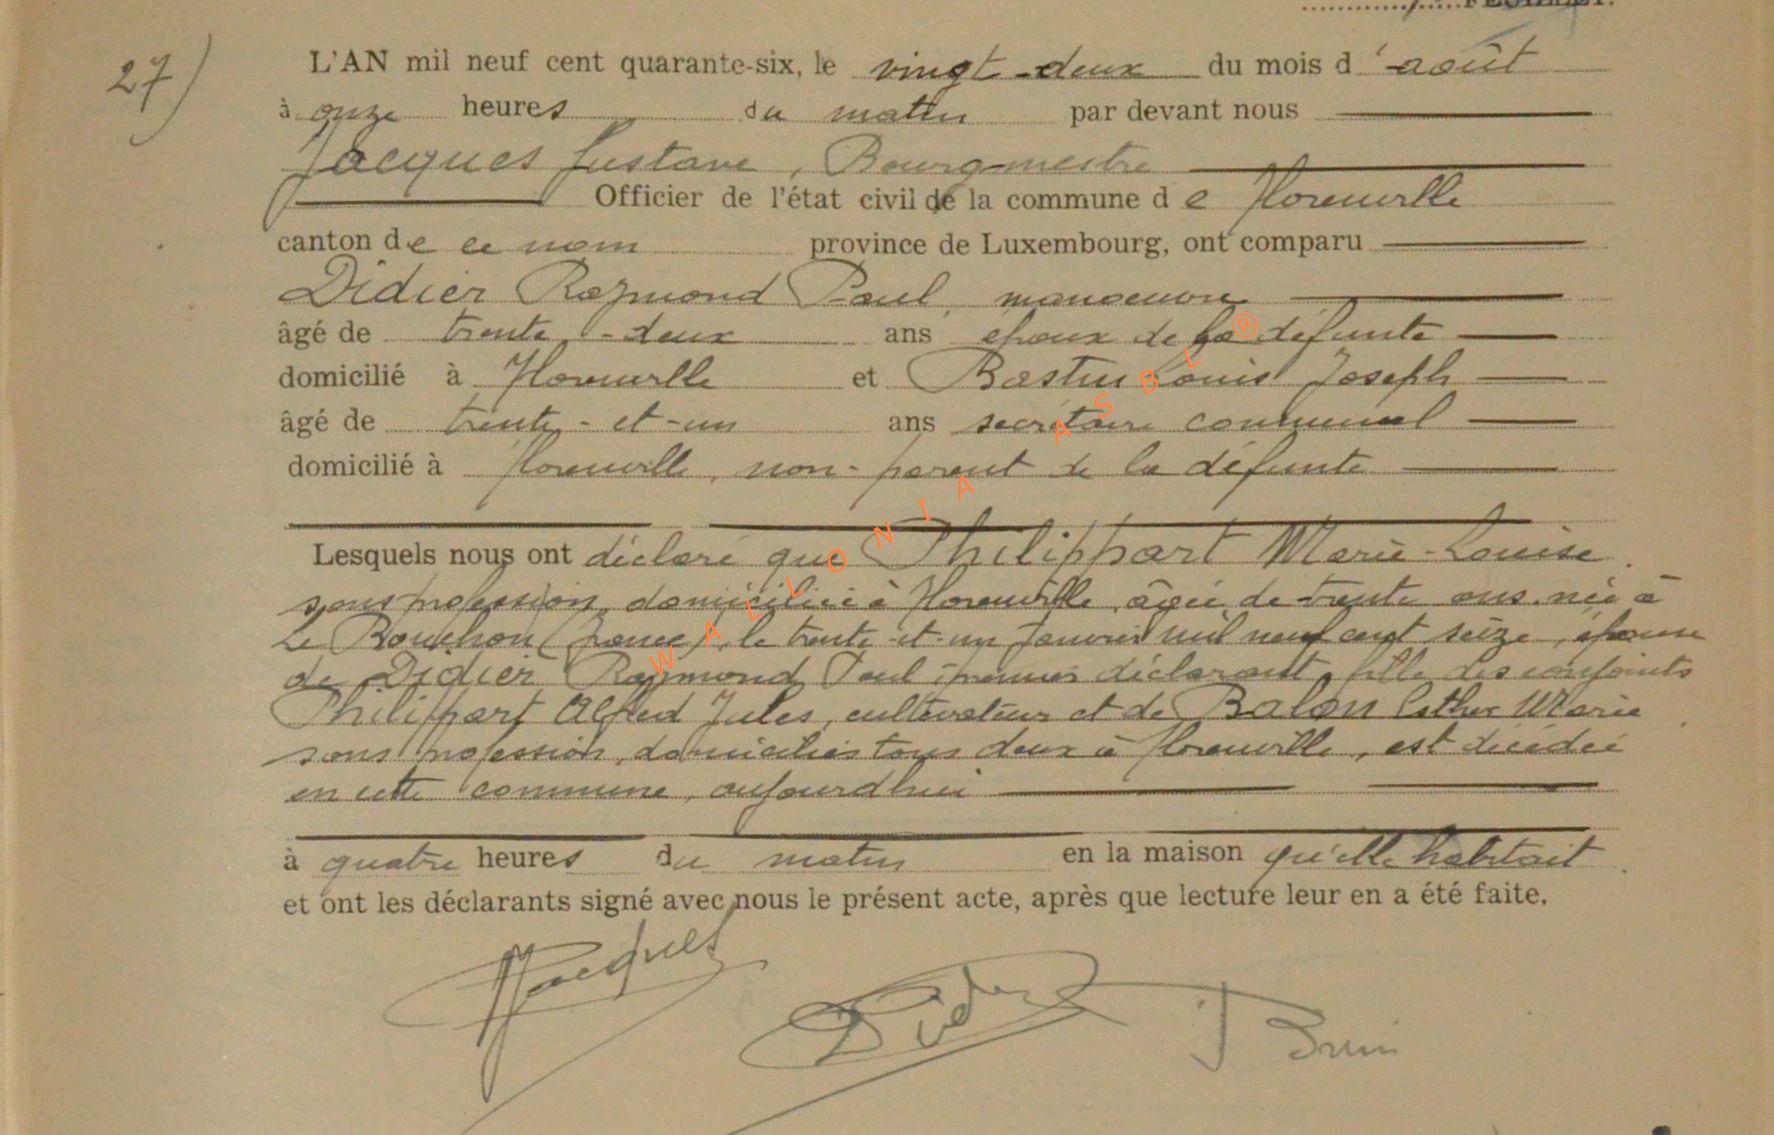 FEUILLET.
27)
L'AN mil neuf cent quarante-six, le vingt-deux du mois d'août
à onze heures du matin par devant nous
Jacques Gustave, Bourgmestre
Officier de l'état civil de la commune de Florenville
canton de ce nom province de Luxembourg, ont comparu
Didier Raymond Paul, manoeuvre
âgé de trente-deux ans époux de la défunte
domicilié à Florenville et Bastin Louis Joseph
âgé de trente-et-un ans secrétaire communal
domicilié à Florenville, non-parent de la défunte
Lesquels nous ont déclaré que Philippart Marie-Louise
sans profession, domiciliée à Florenville, âgée de trente ans, née à
Le Bouchon (France), le trente-et-un janvier mil neuf cent seize, épouse
de Didier Raymond Paul, premier déclarant, fille des conjoints
Philippart Alfred Jules, cultivateur et de Balon Esther Marie
sans profession, domiciliés tous deux à Florenville, est décédée
en cette commune, aujourdhui
à quatre heures du matin en la maison qu'elle habitait
et ont les déclarants signé avec nous le présent acte, après que lecture leur en a été faite.
Jacques
Didier
WALLONIA ASBL ®